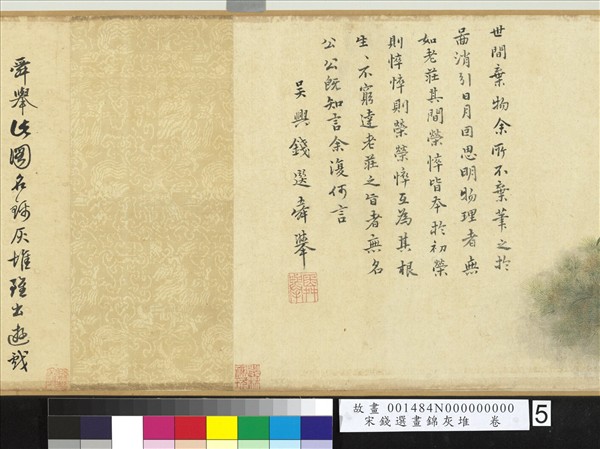 世間棄物余所不棄筆之於
啚消引日月因思明物理者無
如老莊其間榮悴皆本於初榮
則悴悴則榮榮悴互為其根
生生不窮達老莊之旨者無名
公公既知言余復何言
吳興錢選舜舉
舜舉此圖名錦灰堆殆出遊戲
故畫 001484N000000000
宋錢選畫錦灰堆 卷
5